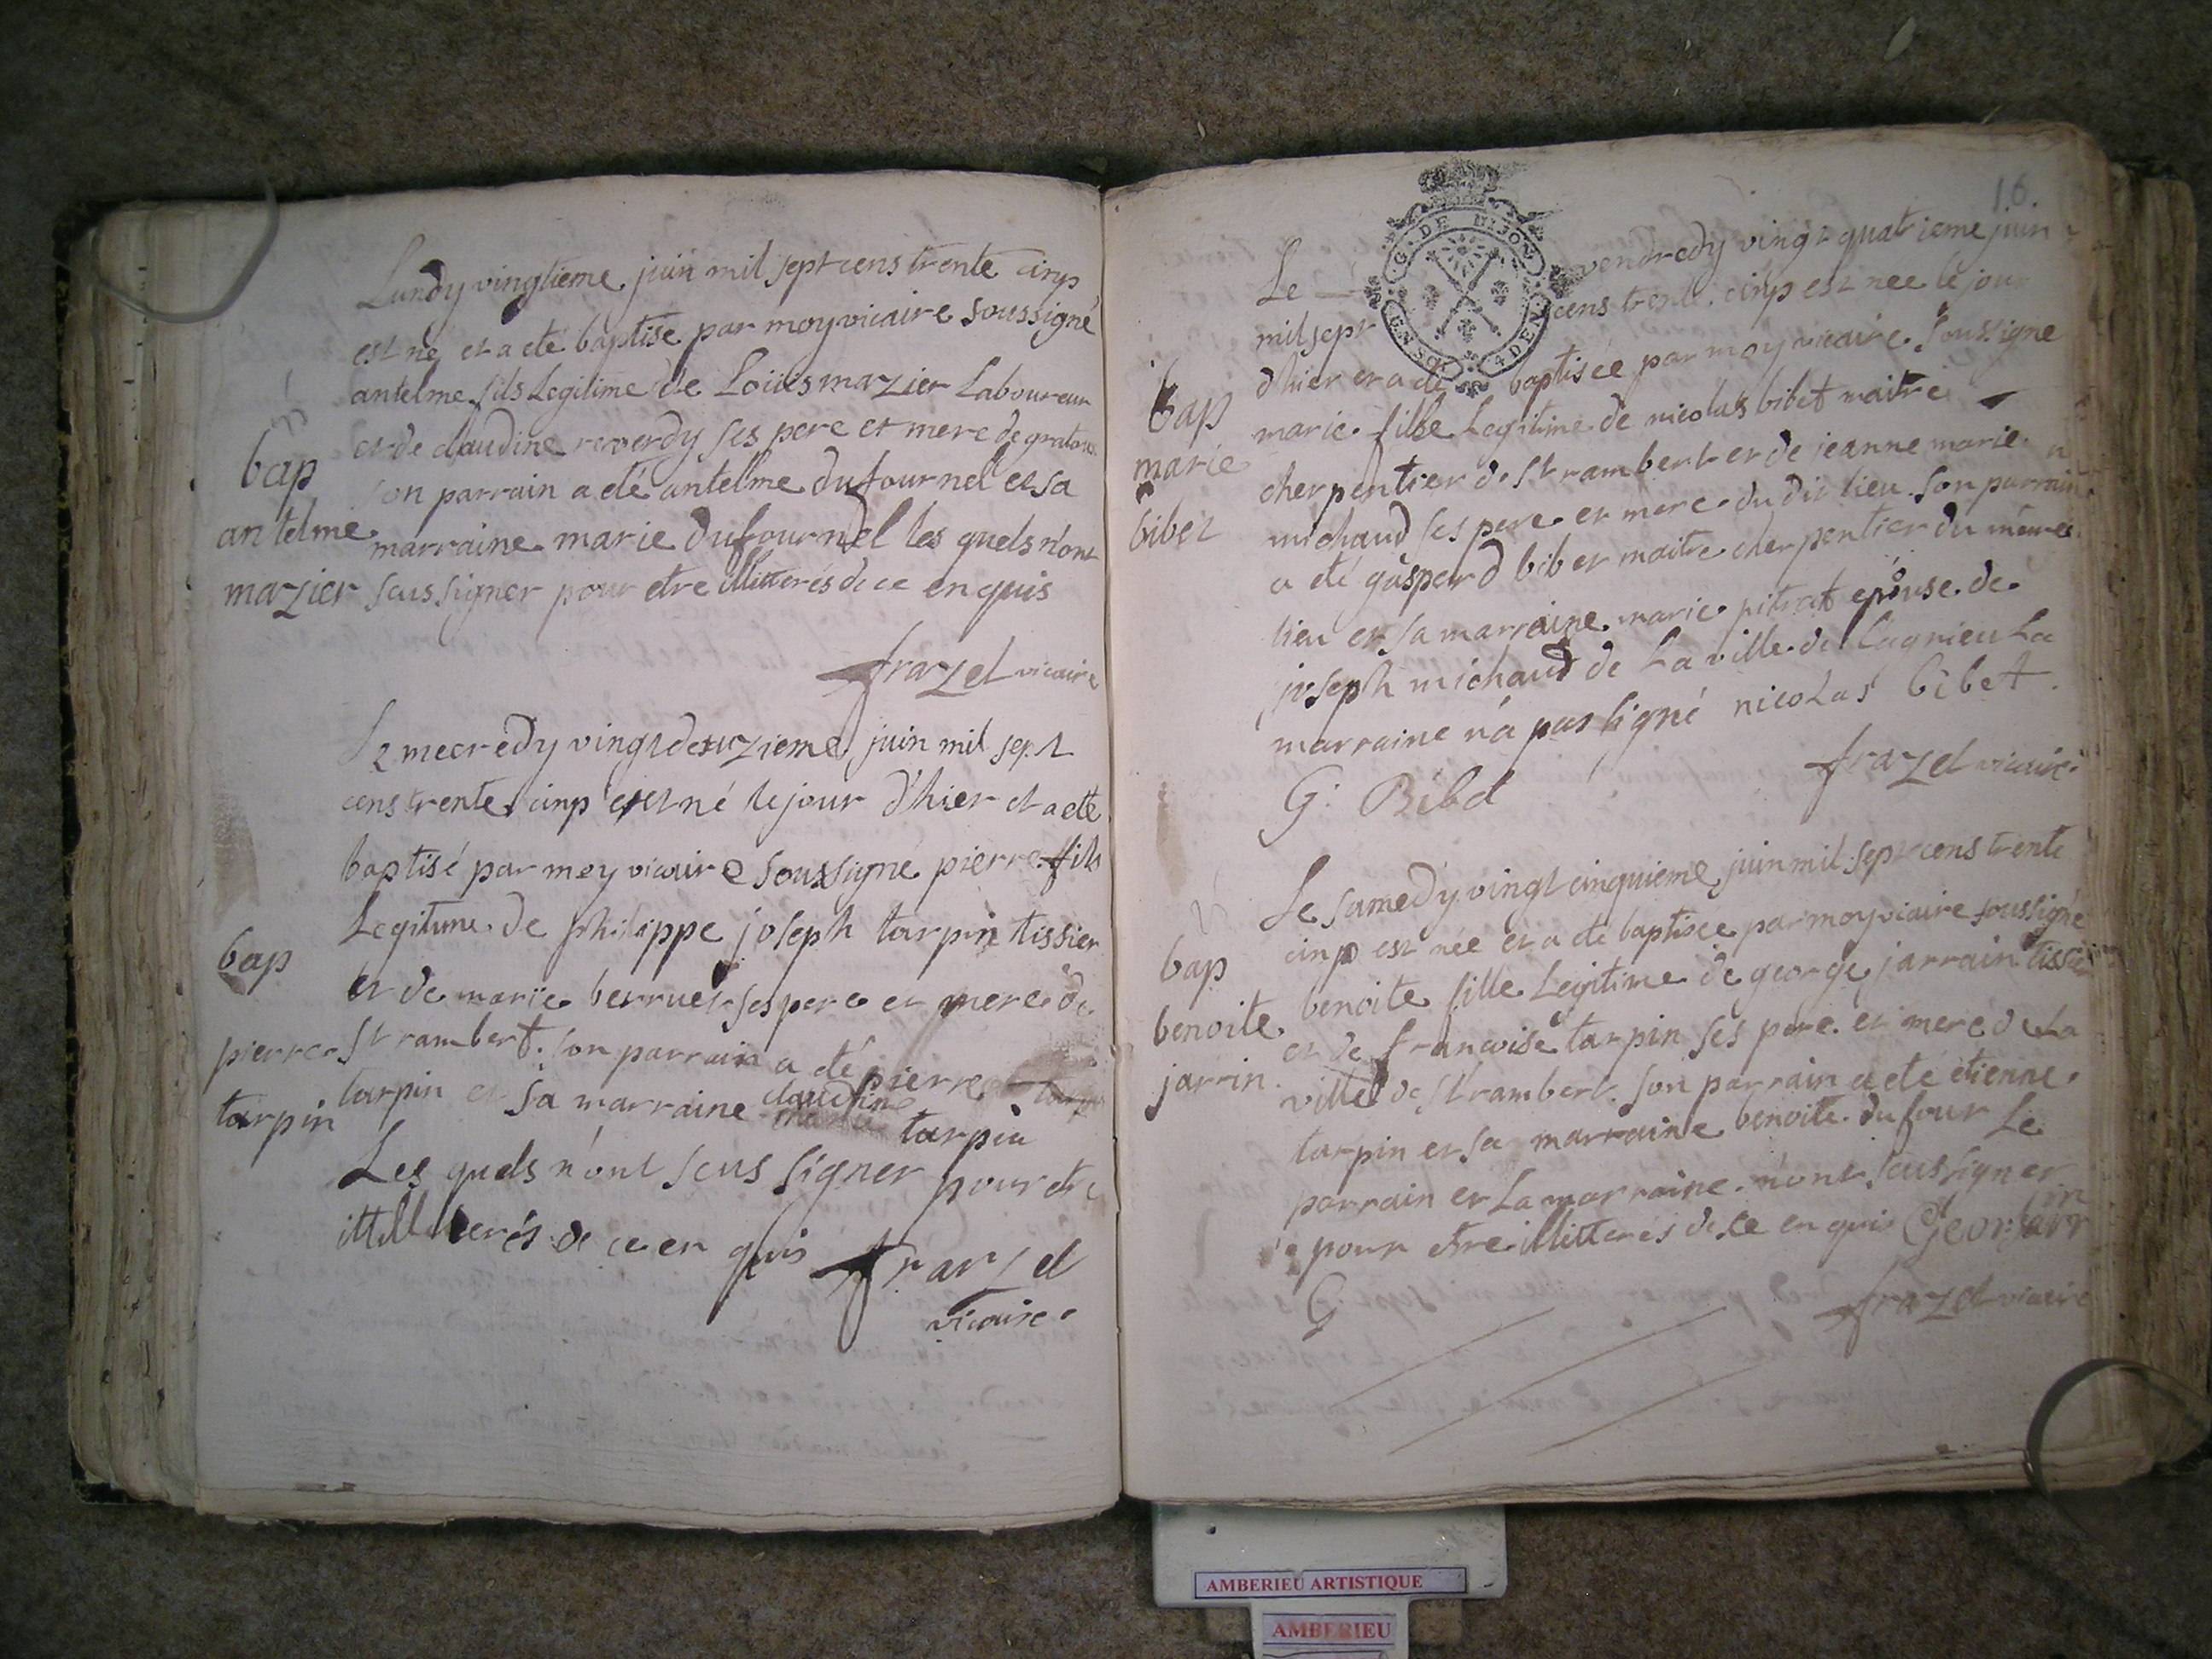 Lundy vingtieme juin mil sept cens trente cinp
est né et a eté baptisé par moy vicaire soussigné
antelme fils Legitime de Loüis mazier Laboureur
et de claudine reverdy ses pere et mere de
bap
son parrain a eté antelme dufournel et sa
antelme
marraine marie dufournel les quels n'ont
mazier
sceus signer pour etre illitterés de ce enquis
frazel vicaire
Le mecredy vingt deuxzieme juin mil sept
cens trente cinp est né le jour d'hier et a eté
baptisé par moy vicaire soussigné pierre fils
Legitime de philippe joseph tarpin tissier
bap
et de marie berruet ses pere et mere de
pierre
St rambert. son parrain a eté pierre
tarpin
tarpin et sa marraine claudine tarpin
Les quels n'ont sceus signer pour etre
de ce en quis frarzel
vicaire
16.
Le vendredy vingt quatrieme juin
mil sept cens trente cinp est née le jour
d'hier et a eté baptisée par moy vicaire soussigné
bap
marie fille Legitime de nicolas bibet maitre
marie
cherpentier de St rambert et de jeanne marie
bibet
michaud ses pere et mere du dit lieu son parrain
a eté gaspard bibet maitre cherpentier du meme
lieu et sa marraine marie pitrat epouse de
joseph michaud de La ville de Lagnieu La
marraine n'a pas signé nicolas bibet
G: Bibet
frazel vicaire
G. DE DIJON
4 DEN
Le samedy vingt cinquieme juin mil sept cens trente
cinp est née et a eté baptisée par moy vicaire soussigné
bap
benoite fille Legitime de george jarrain tissier
benoite
et de francoise tarpin ses pere et mere de La
jarrin
ville de St rambert. son parrain a eté etienne
tarpin et sa marraine benoite dufour Le
parrain et La marraine n'ont sceus signer
pour etre illitterés de ce en quis Geor: Jarrin
G
frazel vicaire
AMBERIEU ARTISTIQUE
AMBERIEU